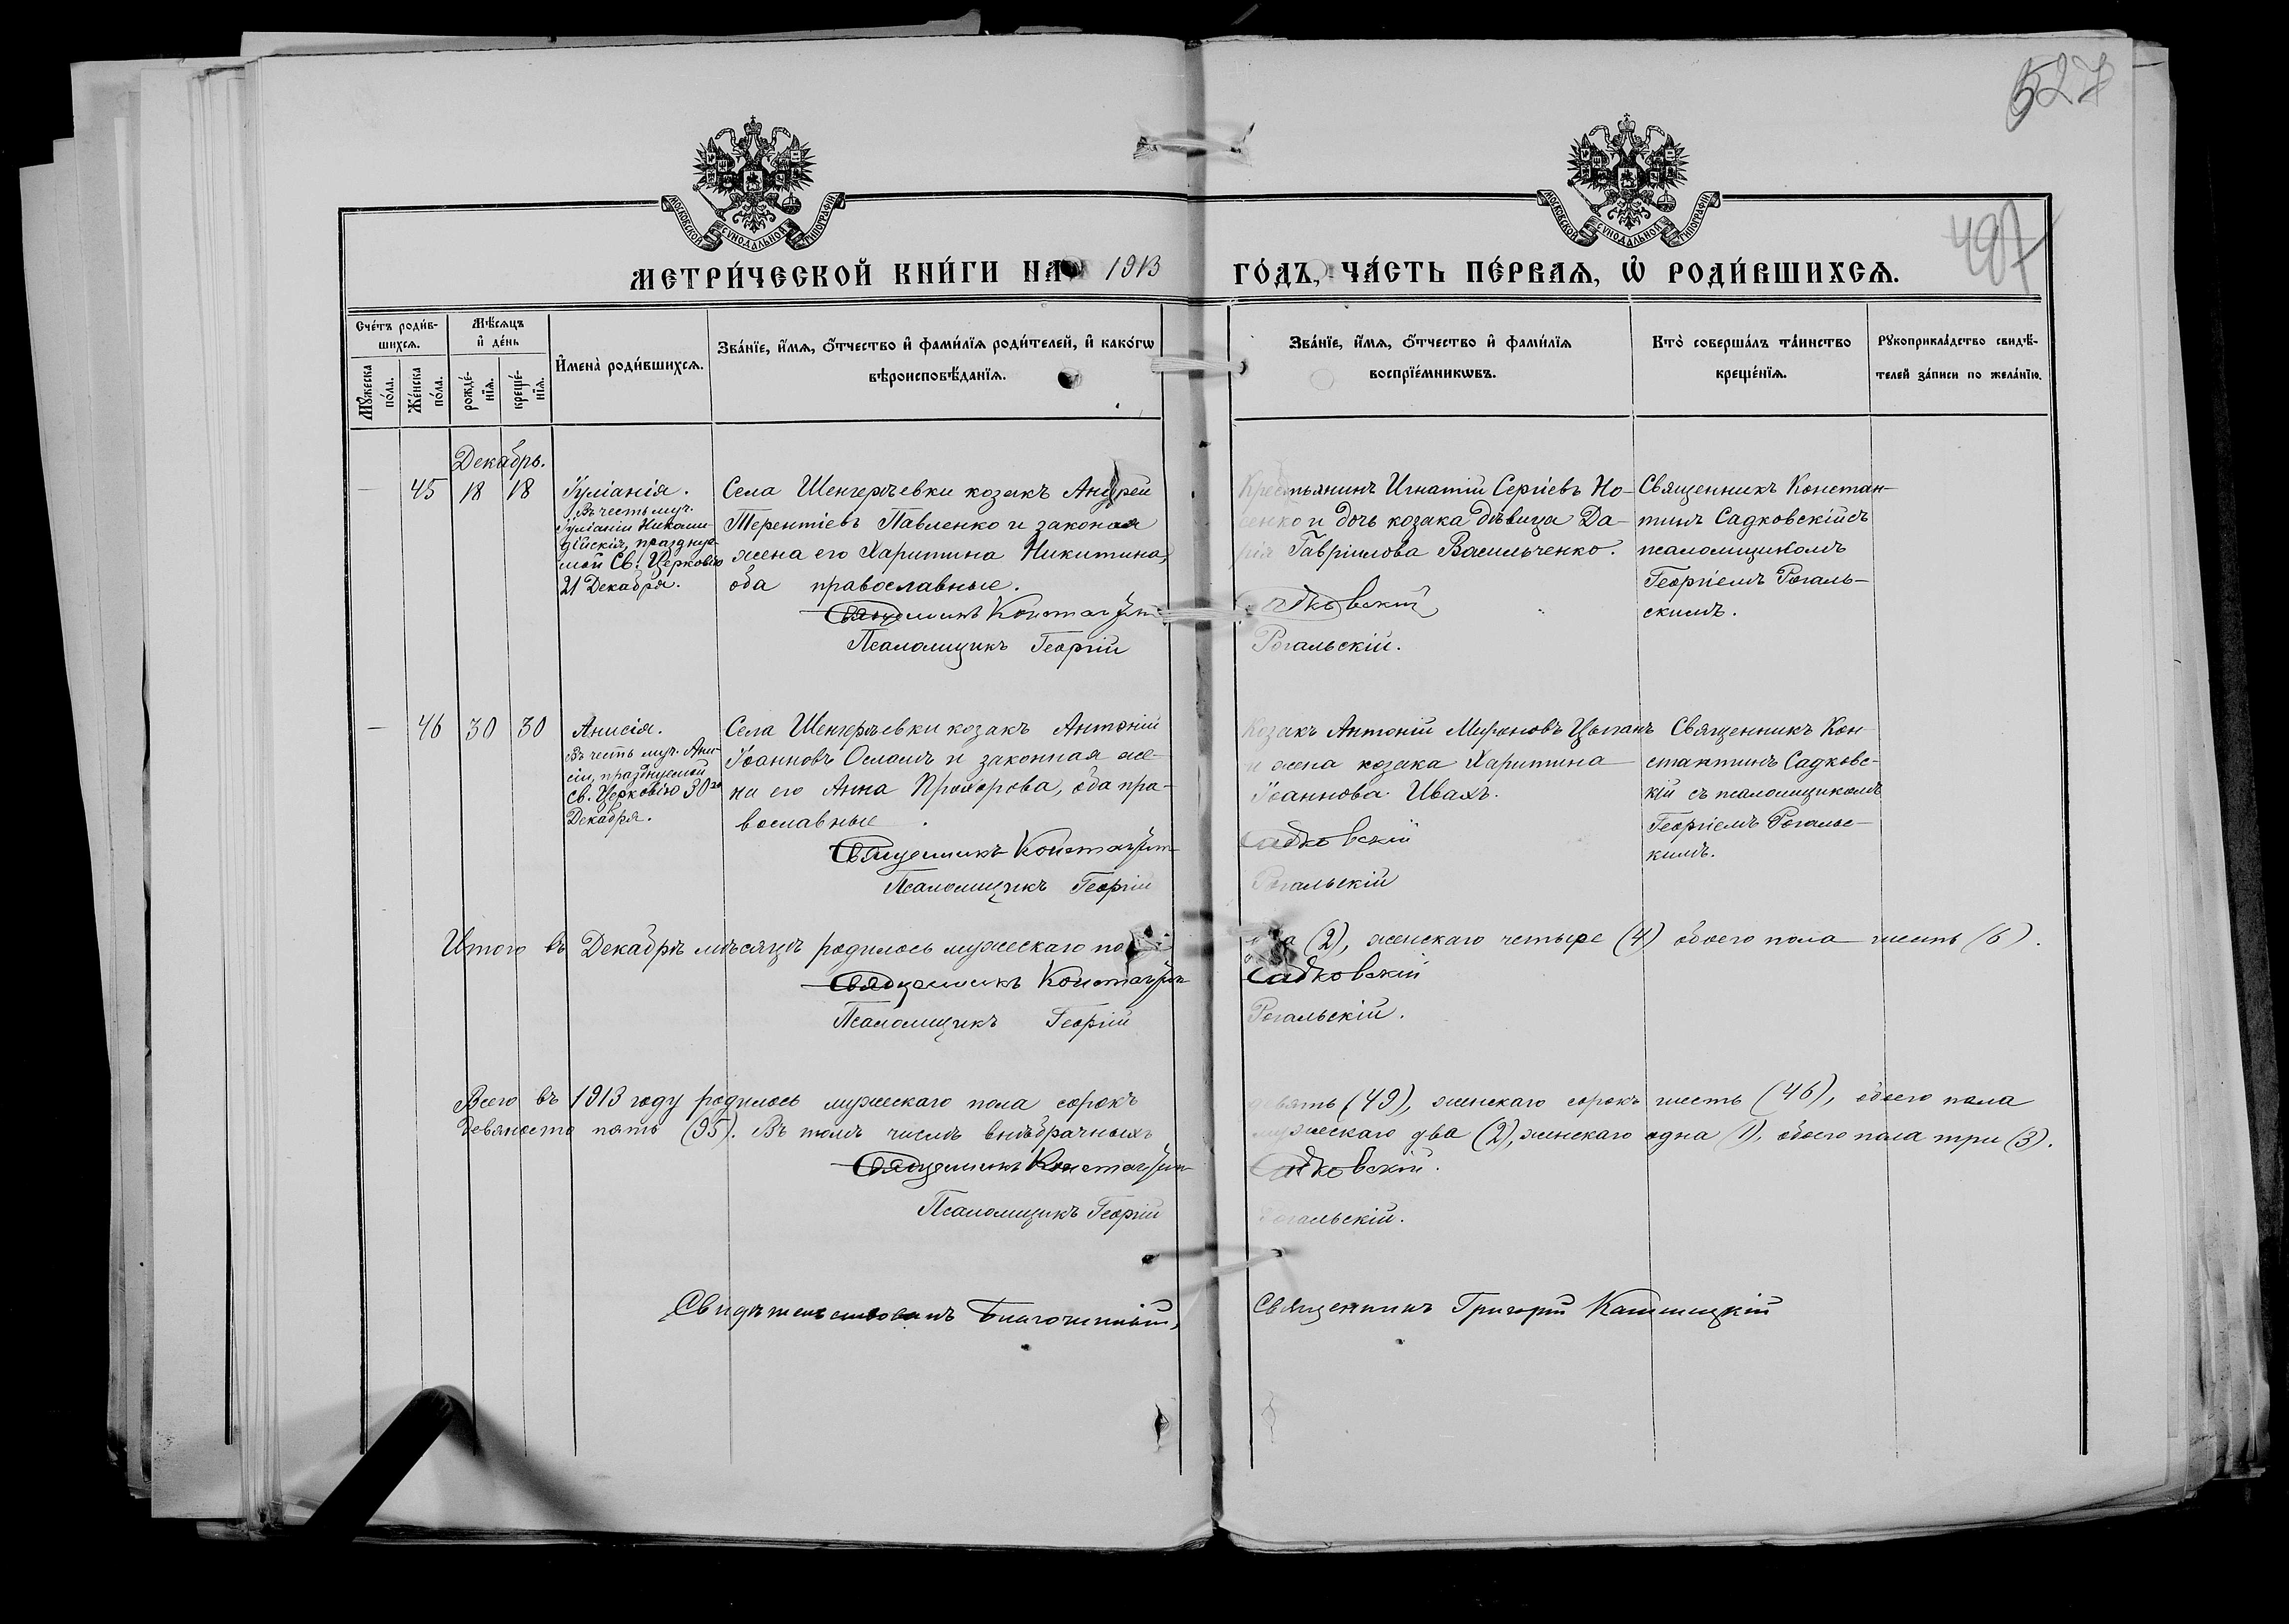 527
487
МОСКОВСКОЙ СУНОДАЛЬНОЙ ТИПОГРАФІИ
МОСКОВСКОЙ СУНОДАЛЬНОЙ ТИПОГРАФІИ
МЕТРИ́ЧЕСКОЙ КНИ́ГИ НА 1913
ГО́ДЪ, ЧА́СТЬ ПЕ́РВАѦ, Ѡ҆ РОДИ́ВШИХСѦ.
Сче́тъ роди́в-
шихсѧ.
Мѣ́сѧцъ
и҆ де́нь
Мꙋ́жеска
по́ла.
Же́нска
по́ла.
рожде́-
нїѧ.
креще́-
нїѧ.
И҆мена̀ роди́вшихсѧ.
Зва́нїе, и҆́мѧ, ѻ҆́тчество и҆ фами́лїѧ роди́телей, и҆ како́гѡ
вѣроисповѣ́данїѧ.
Зва́нїе, и҆́мѧ, ѻ҆́тчество и҆ фами́лїѧ
воспрїе́мникѡвъ.
Кто̀ соверша́лъ та́инство
креще́нїѧ.
Рꙋкоприкла́дство свидѣ́-
телей за́писи по жела́нїю.
Декабрь.
— 45 18 18
Іуліанія.
Въ честь муч.
Іуліаніи Никоми-
дійскія, праздную-
мой Св. Церковію
21 Декабря.
Села Шенгерѣевки козакъ Андрей
Терентіевъ Павленко и законая
жена его Харитина Никитина,
оба православные.
Священникъ Константин
Псаломщикъ Георгій
Крестьянинъ Игнатій Сергіевъ Но-
сенко и дочь козака дѣвица Да-
рія Гавріилова Васильченко.
Садковскій
Рогальскій.
Священникъ Констан-
тинъ Садковскій съ
псаломщикомъ
Георгіемъ Рогаль-
скимъ.
— 46 30 30
Анисія.
Въ честь муч. Ани-
сіи, празднуемой
Св. Церковію 30го
Декабря.
Села Шенгерѣевки козакъ Антоній
Іоанновъ Осламъ и законная же-
на его Анна Прохорова, оба пра-
вославные.
Священникъ Константин
Псаломщикъ Георгій
Козакъ Антоній Мироновъ Цыганъ
и жена козака Харитина
Іоаннова Ивахъ.
Садковскій
Рогальскій
Священникъ Кон-
стантинъ Садковс-
кій съ псаломщикомъ
Георгіемъ Рогальс-
кимъ.
Итого въ Декабрѣ мѣсяцѣ родилось мужескаго пола
два (2), женскаго четыре (4) обоего пола шесть (6).
Священникъ Константин
Садковскій
Псаломщикъ Георгій
Рогальскій.
Всего въ 1913 году родилось мужескаго пола сорокъ
девять (49), женскаго сорокъ шесть (46), обоего пола
девяносто пять (95). Въ томъ числѣ внѣбрачныхъ
мужескаго два (2), женскаго одна (1), обоего пола три (3).
Священникъ Константин
Садковскій.
Псаломщикъ Георгій
Рогальскій.
Свидѣтельствовалъ Благочинный,
Священникъ Григорій